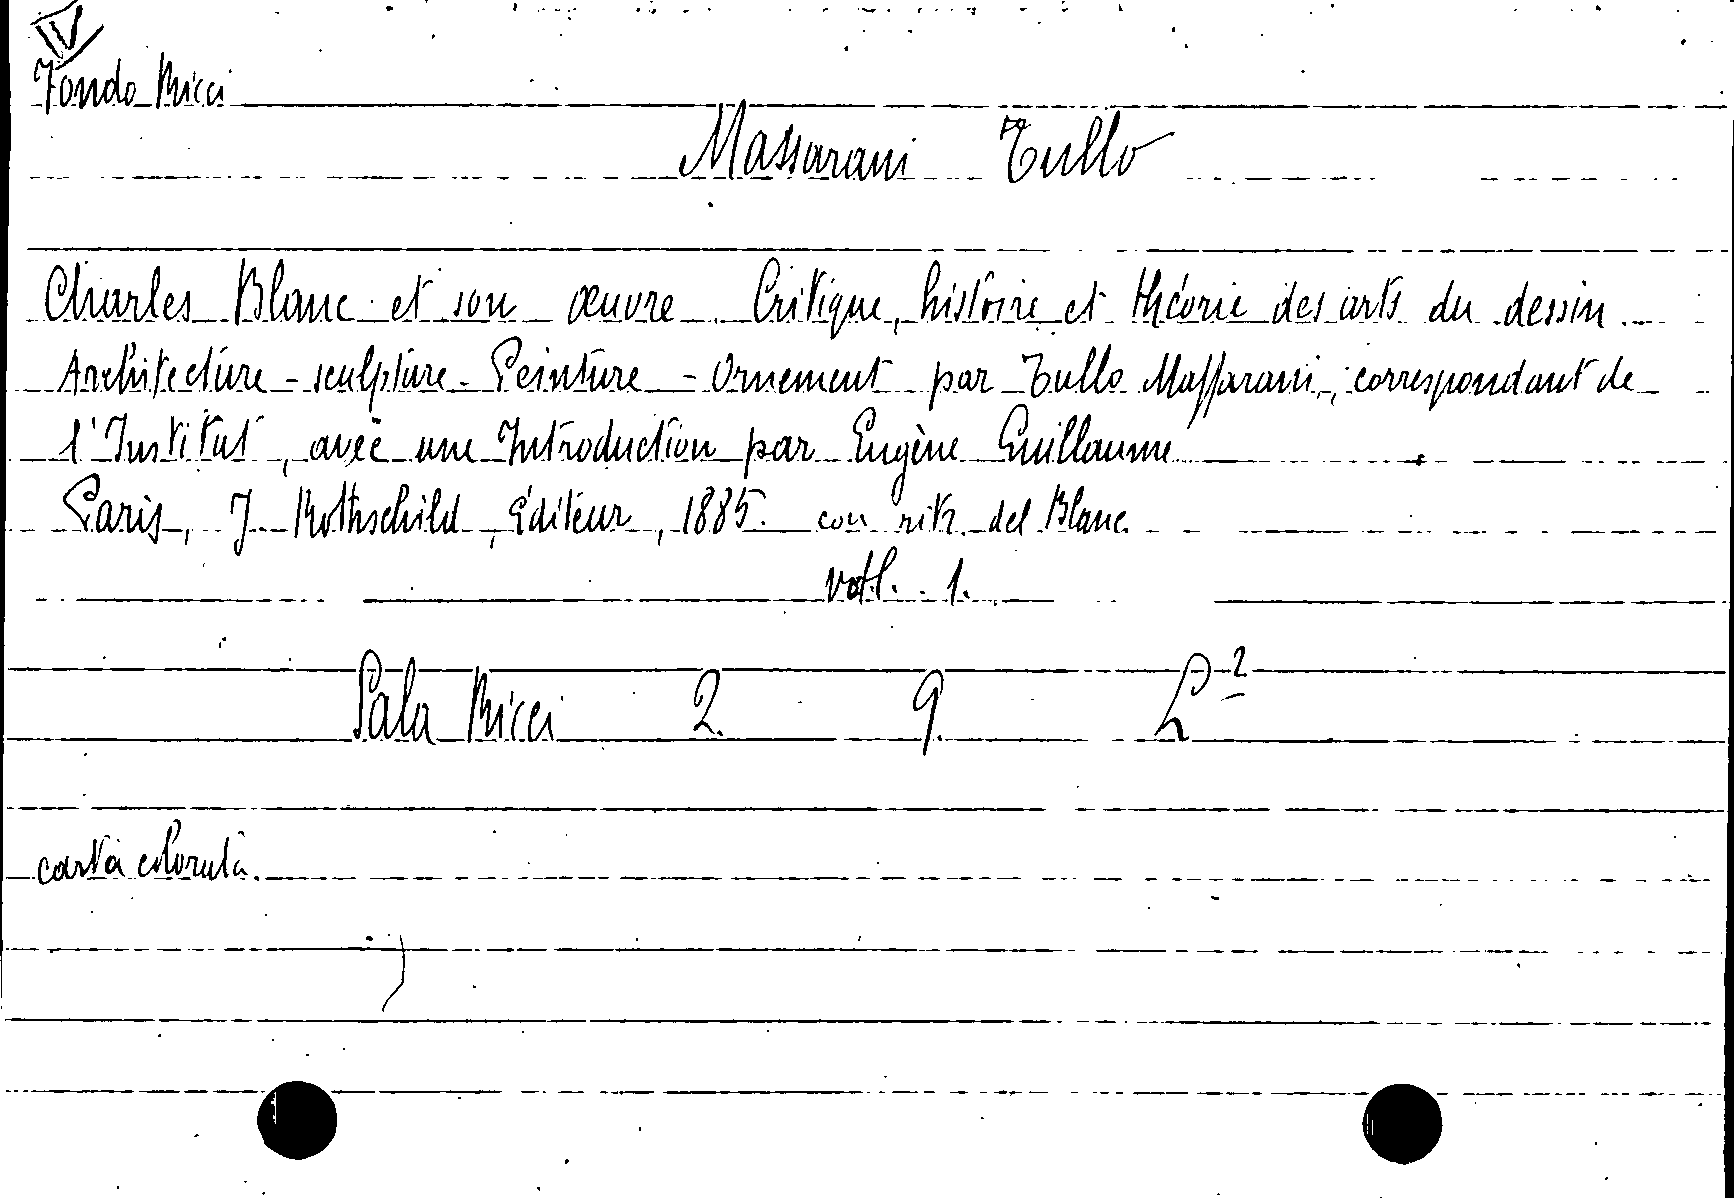 IV
Fondo Ricci
Massarani Tullo
Charles Blanc et son œuvre. Critique, histoire et théorie des arts du dessin.
Architecture - sculpture - Peinture - Ornement par Tullo Massarani, correspondant de
l'Institut, avec une Introduction par Eugène Guillaume
Paris, J. Rothschild, Éditeur, 1885. con ritr. del Blanc.
voll. 1.
Sala Ricci 2. 9.
carta colorata.